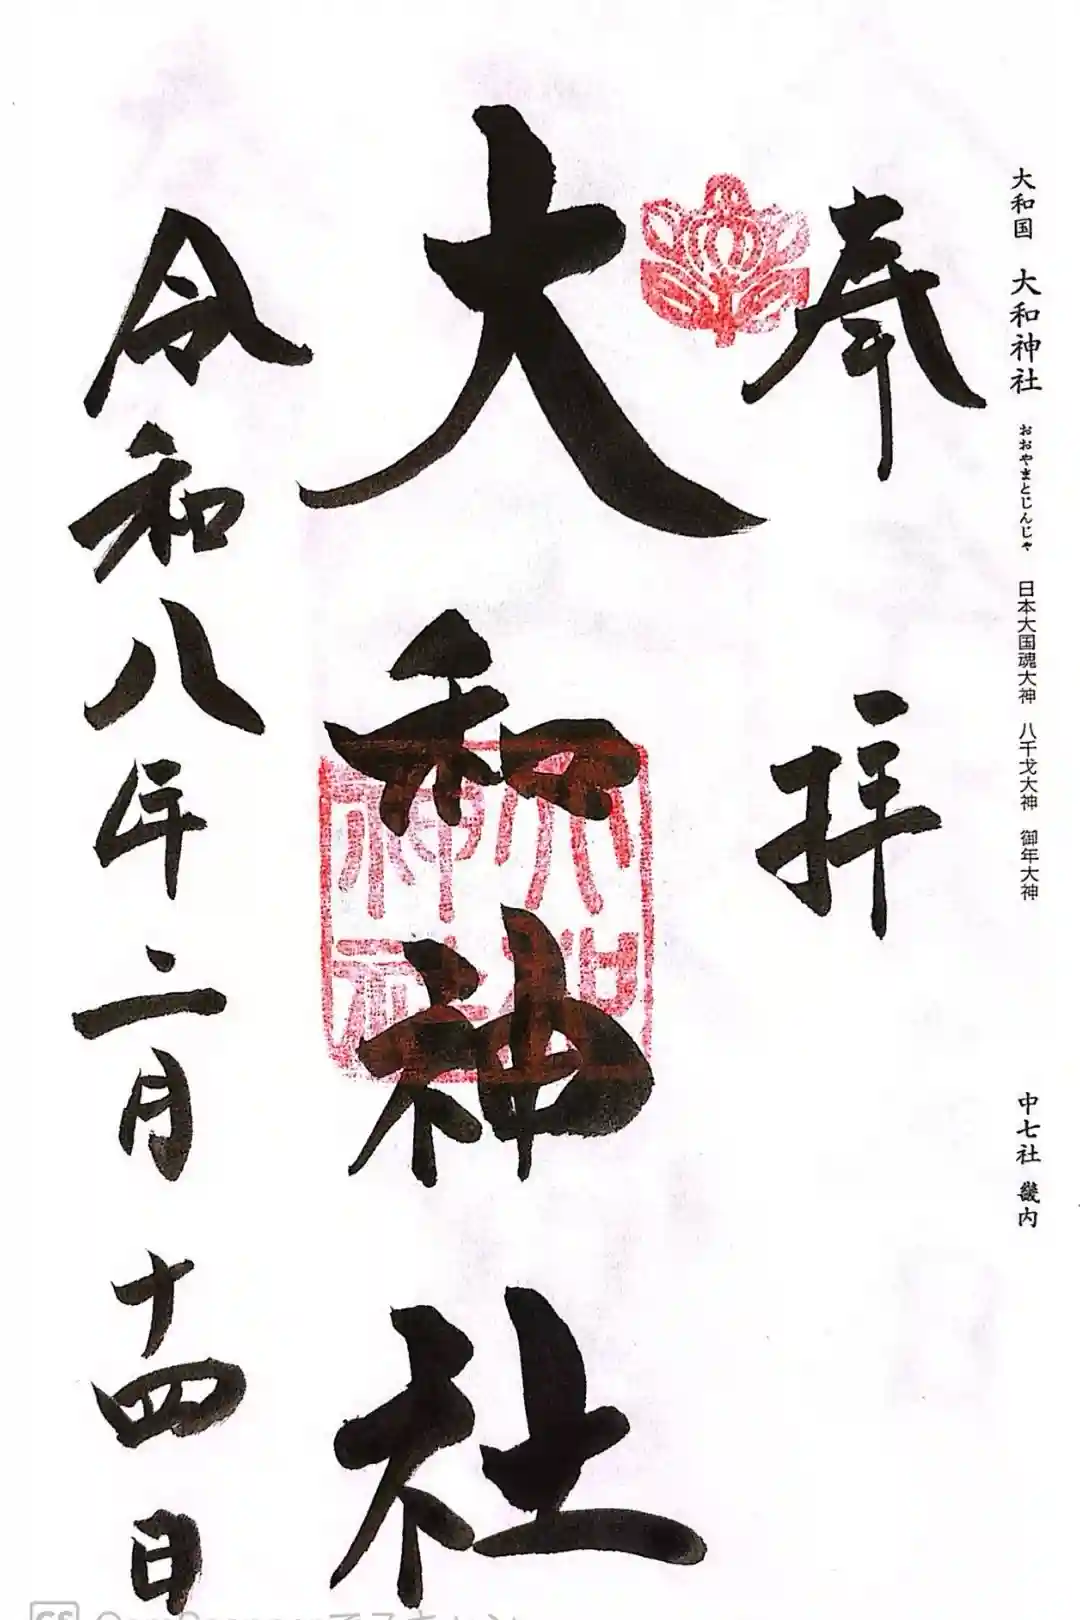 大和国 大和神社 おおやまとじんじゃ 日本大国魂大神 八千戈大神 御年大神
中七社 畿内
奉拝
大和神社
大和神社
令和八年二月十四日